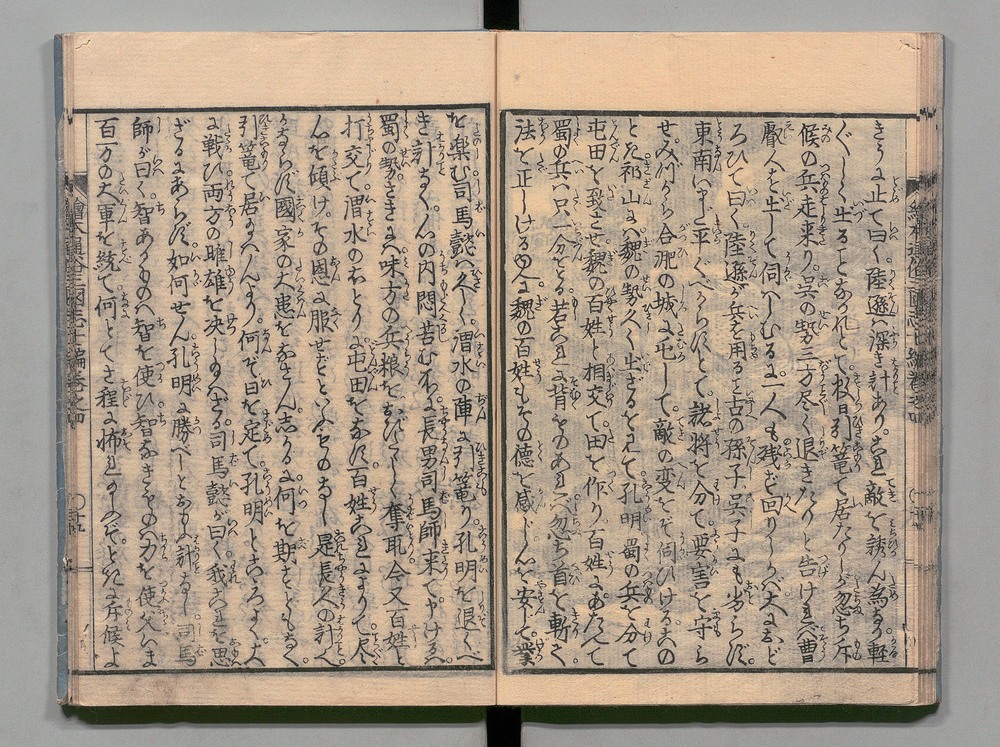 きうに止て曰く陸遜ハ深き計あり。これ敵を誘ん為なり軽
ぐしく出ることなかれとて数日引篭て居たりしが忽ち斥
候の兵走来り。呉の勢三方尽く退きたりと告けれバ曹
叡人を出して伺ハしむるに一人も残ず回りしかバ大におど
ろひて曰く陸遜が兵を用ること古の孫子呉子にも劣らず。
東南いまだ平ぐべからずとて。諸将を分て要害を守ら
せ。みづから合淝の城に屯して。敵の変をぞ伺ひける。その
とき祁山にハ魏の勢久く出ざるを見て。孔明 蜀の兵を分て
屯田を致させ魏の百姓と相交て田を作り。百姓にあたへて
蜀の兵ハ只一分をとる。若これに背ものあれバ忽ち首を斬てその
法を正しける故に魏の百姓もその徳を感じ。心を安じて業
を楽む司馬懿ハ久しく渭水の陣に引篭り。孔明を退くべ
き計なく心の内悶苦む所に長男司馬師来て申けるハ。
蜀の勢さきにハ味方の兵粮をおびたゝしく奪取。今又百姓と
打交て渭水の右とりに屯田をなす百姓これによりて尽く
心を傾け。その恩に服せずといふものなし 是長久の計ハ
かならず國家の大患をなさん。志かるに何を期もともなく。
引篭て居玉ハんより。何ぞ日を定て。孔明とこゝろよく大
に戦ひ両方の雌雄を決し玉ハざる。司馬懿が曰く。我これを思
ざるにあらず。如何せん孔明に勝べしとおもふ計なし 司馬
師が曰く。智あるものハ智を使ひ智なきものハ力を使父ハま
百万の大軍を統て何とてさ程に怖れ玉ふのぞ。ときに斥候よ